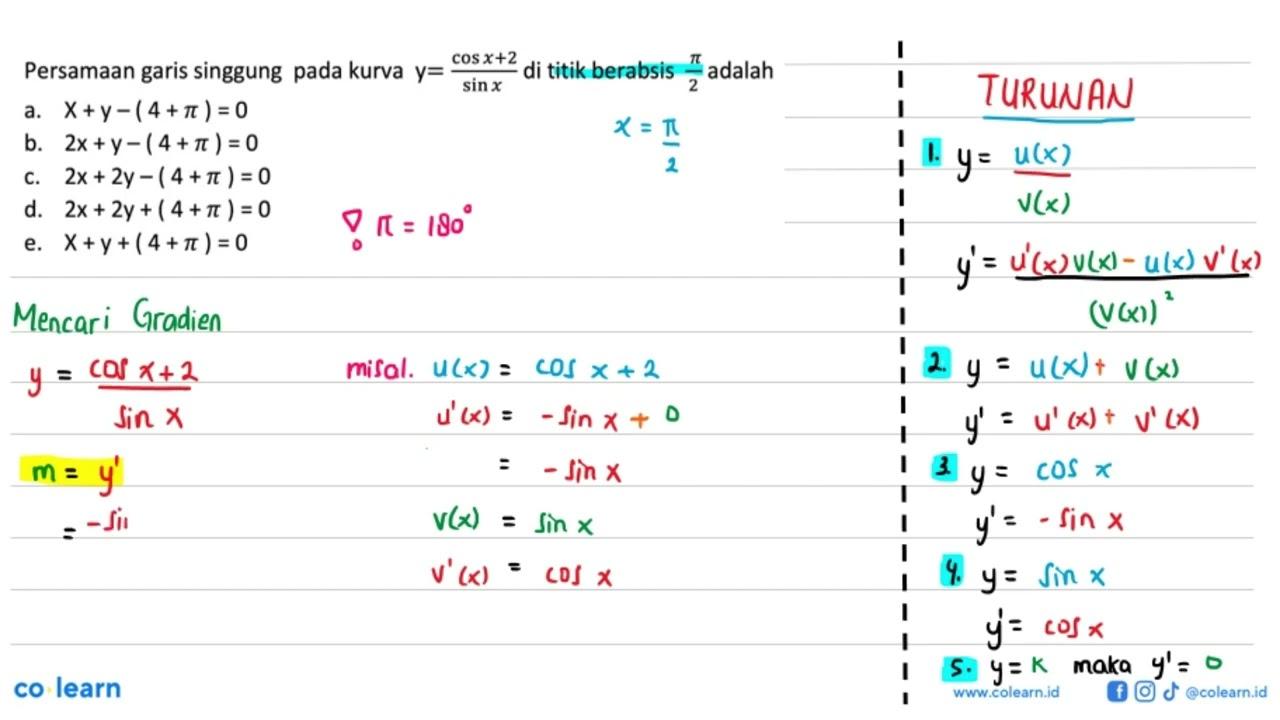 Persamaan garis singgung pada kurva y= cos x+2 / sin x di titik berabsis π/2 adalah
a. X + y – ( 4 + π ) = 0
b. 2x + y – ( 4 + π ) = 0
c. 2x + 2y – ( 4 + π ) = 0
d. 2x + 2y + ( 4 + π ) = 0
e. X + y + ( 4 + π ) = 0
x = π/2
π = 180°
Mencari Gradien
y = cos x + 2 / sin x
m = y'
= -sin
misal. u(x) = cos x + 2
u'(x) = -sin x + 0
= -sin x
v(x) = sin x
v'(x) = cos x
TURUNAN
1. y = u(x) / v(x)
y' = u'(x) v(x) - u(x) v'(x) / (v(x))²
2. y = u(x) + v(x)
y' = u'(x) + v'(x)
3. y = cos x
y' = - sin x
4. y = sin x
y' = cos x
5. y = k maka y' = 0
co learn
www.colearn.id
@colearn.id